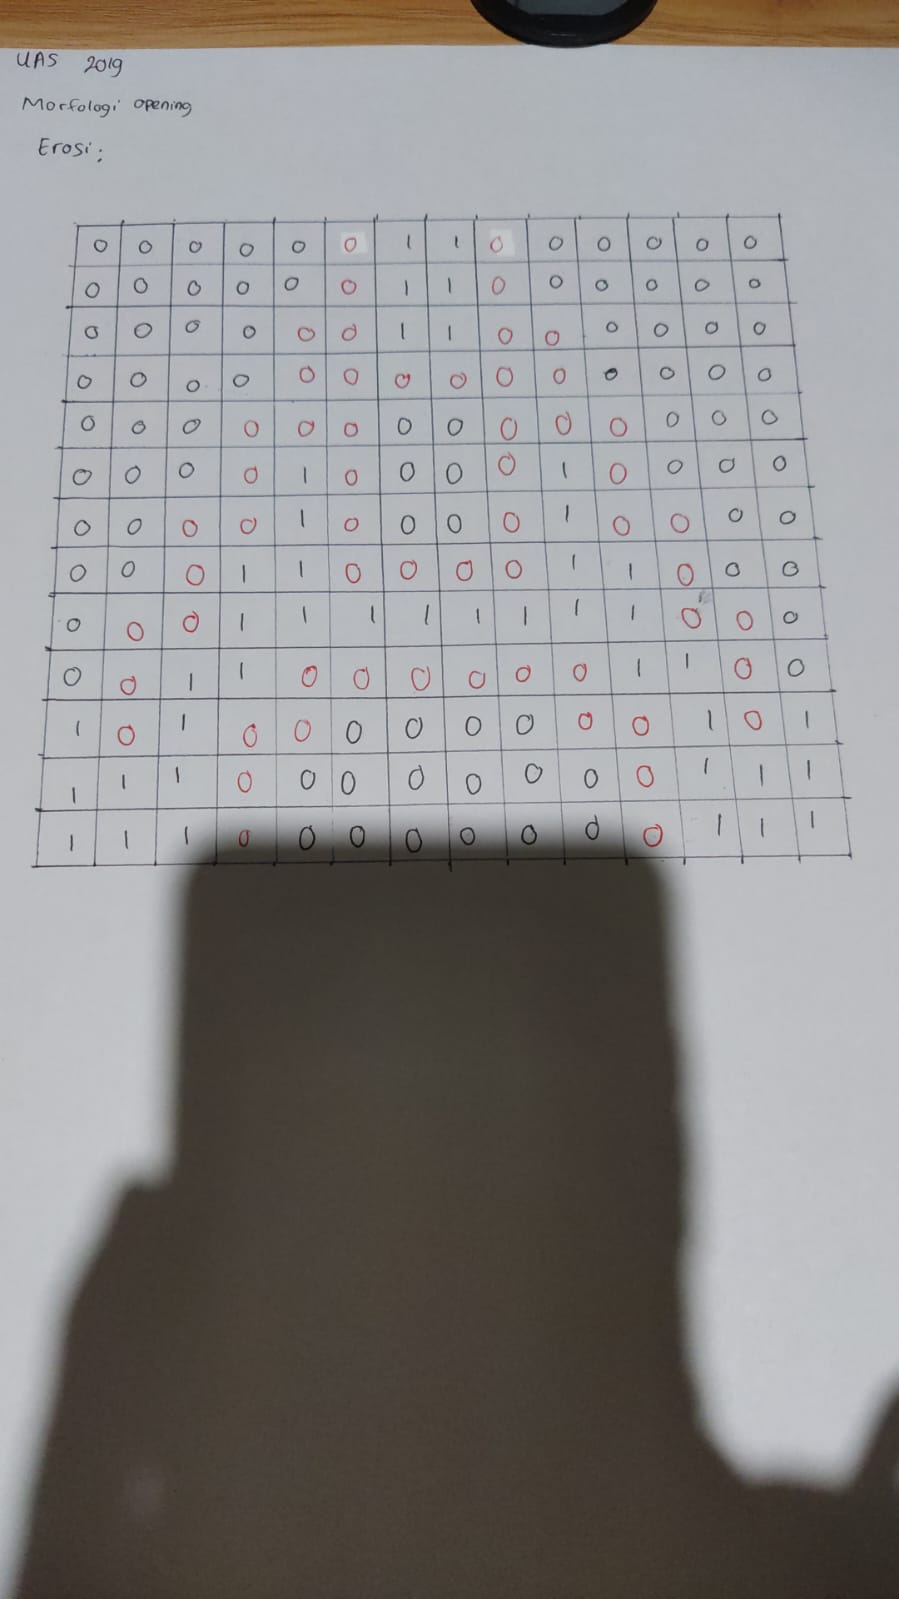 UAS 2019
Morfologi opening
Erosi:
0 0 0 0 0 0 1 1 0 0 0 0 0 0
0 0 0 0 0 0 1 1 0 0 0 0 0 0
0 0 0 0 0 0 1 1 0 0 0 0 0 0
0 0 0 0 0 0 0 0 0 0 0 0 0 0
0 0 0 0 0 0 0 0 0 0 0 0 0 0
0 0 0 0 1 0 0 0 0 1 0 0 0 0
0 0 0 0 1 0 0 0 0 1 0 0 0 0
0 0 0 1 1 0 0 0 0 1 1 0 0 0
0 0 0 1 1 1 1 1 1 1 1 0 0 0
0 0 1 1 0 0 0 0 0 0 1 1 0 0
1 0 1 0 0 0 0 0 0 0 0 1 0 1
1 1 1 0 0 0 0 0 0 0 0 1 1 1
1 1 1 0 0 0 0 0 0 0 0 1 1 1